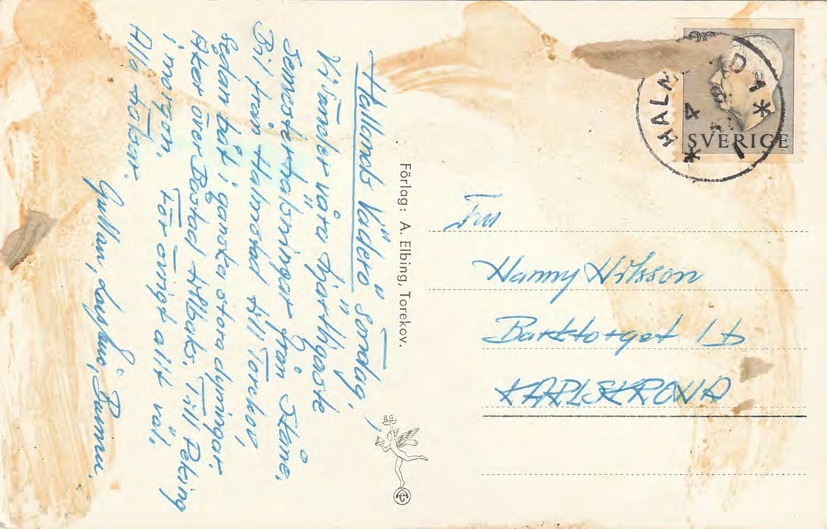 Hallands Väderö söndag.
Vi sänder våra hjärtligaste
semesterhälsningar från Skåne.
Bil från Halmstad till Torekov,
sedan båt i ganska stora dyningar.
Åker över Båstad tillbaks. Till Peking
i morgon. För övrigt allt väl.
Alla hälsar.
Gullan,
Förlag: A. Elbing, Torekov.
HALMSTAD 1
4
SVERIGE
Fru
Hanny Nilsson
Barktorget 1 b
KARLSKRONA